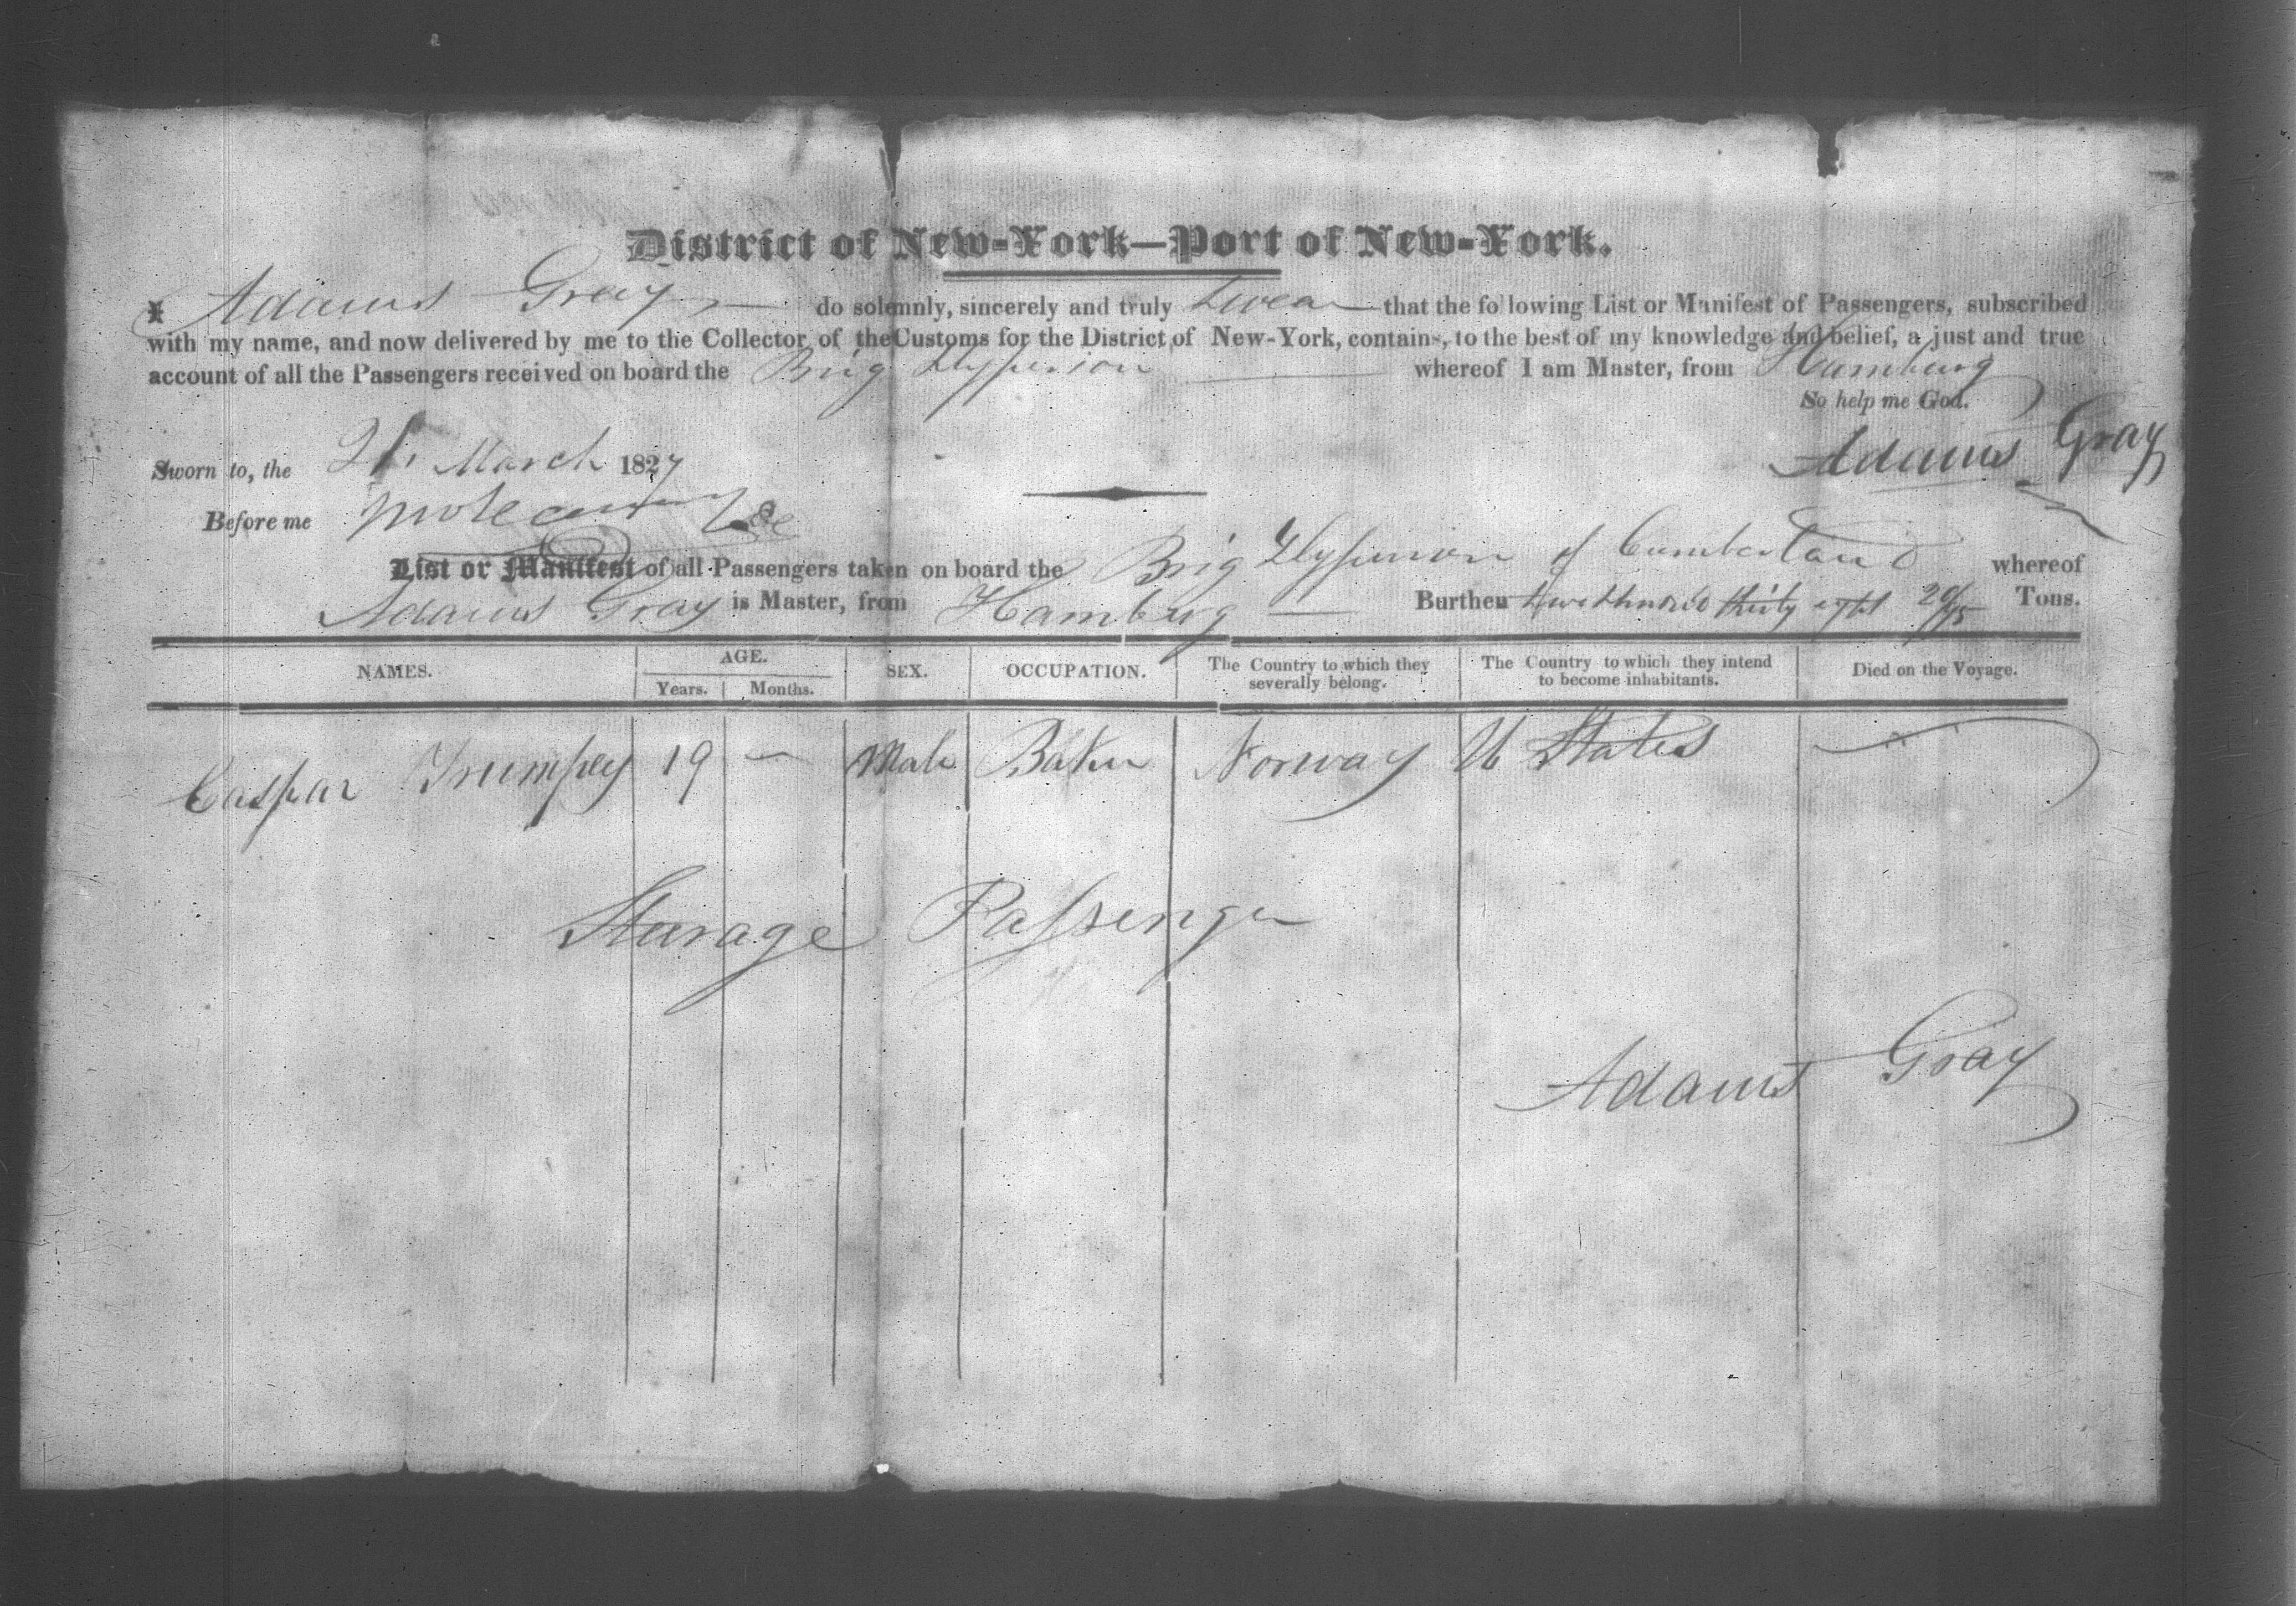 District of New-York—Port of New-York.
I Adams Gray do solemnly, sincerely and truly Swear that the following List or Manifest of Passengers, subscribed
with my name, and now delivered by me to the Collector of the Customs for the District of New-York, contains, to the best of my knowledge and belief, a just and true
account of all the Passengers received on board the Brig Hyperion whereof I am Master, from Hamburg
So help me God.
Sworn to, the 21 March 1827
Adams Gray
Before me
List or Manifest of all Passengers taken on board the Brig Hyperion of Cumberland whereof
Adams Gray is Master, from Hamburg Burthen two hundred thirty eight 20/95 Tons.
NAMES. AGE. SEX. OCCUPATION. The Country to which they severally belong. The Country to which they intend to become inhabitants. Died on the Voyage.
Years. Months.
Caspar Trumpey 19 — Male Baker Norway U States —
Sturage Passenger
Adams Gray